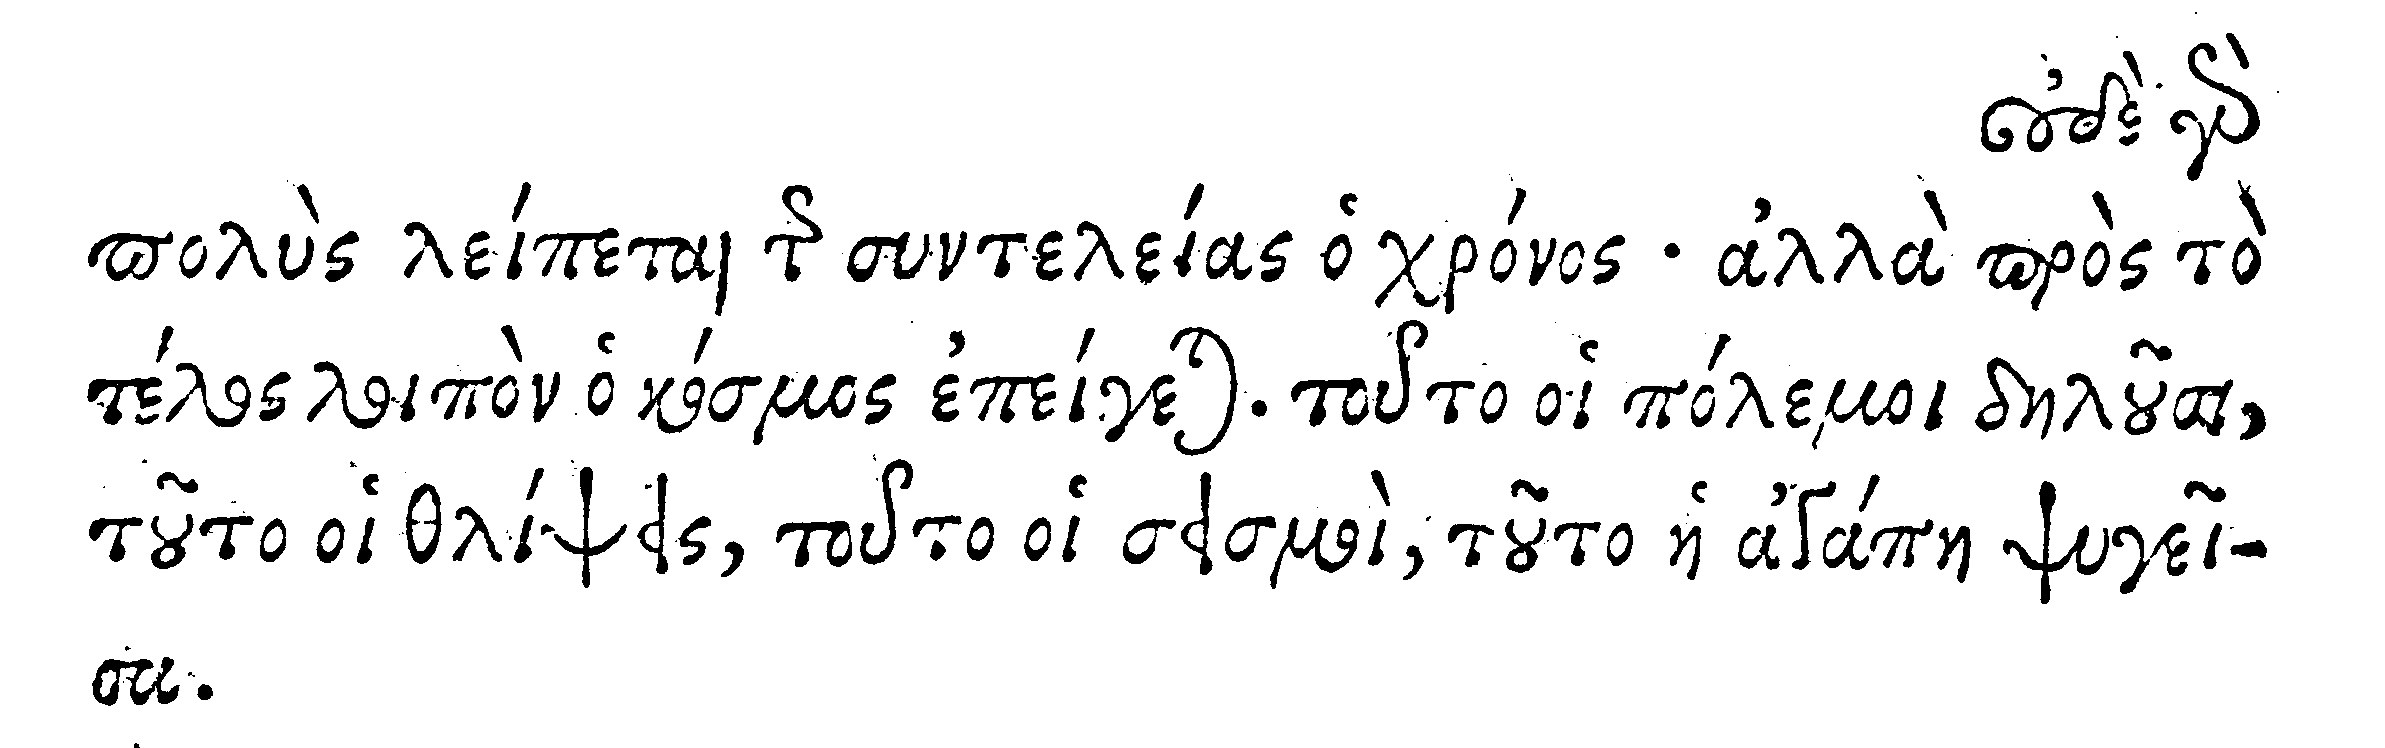 οὐδὲ γὰρ
πολὺς λείπεται τῆς συντελείας ὁ χρόνος · ἀλλὰ πρὸς τὸ
τέλος λοιπὸν ὁ κόσμος ἐπείγεται. τοῦτο οἱ πόλεμοι δηλοῦσι,
τοῦτο οἱ θλίψεις, τοῦτο οἱ σεισμοὶ, τοῦτο ἡ ἀγάπη ψυγεῖ-
σα.